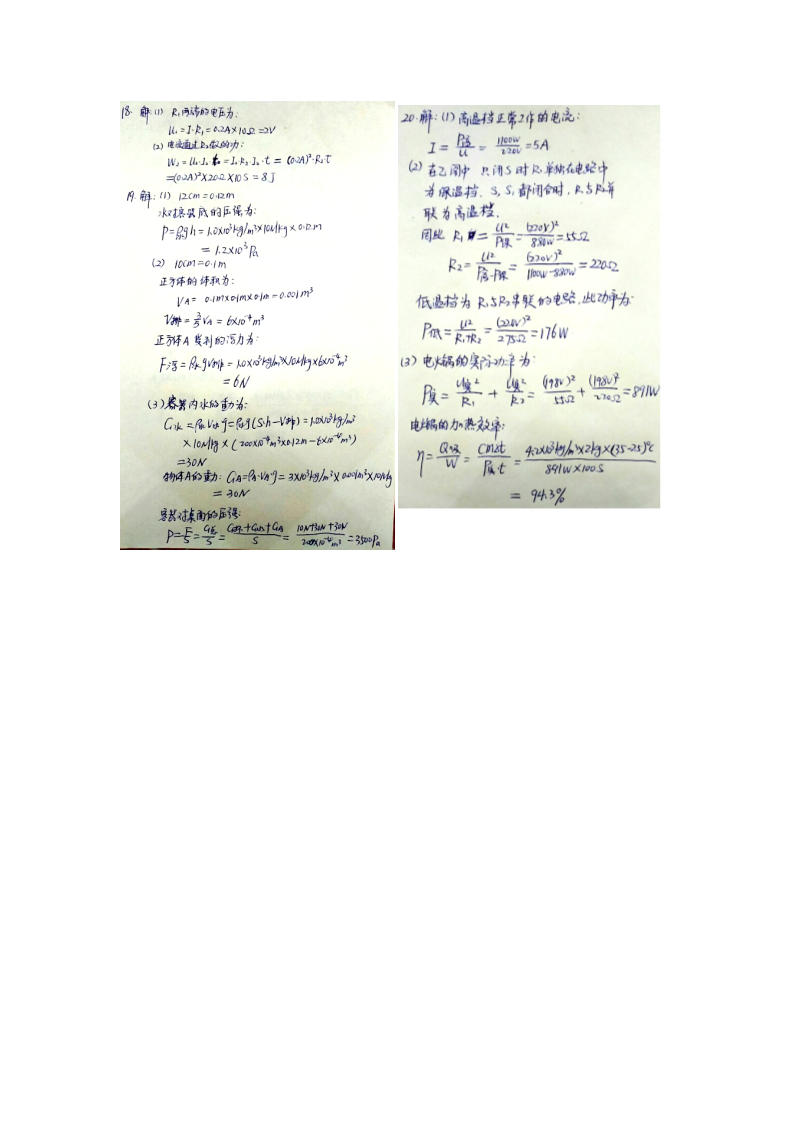 18. 解:(1) R₁两端的电压为:
U₁=I·R₁=0.2A×10Ω=2V
(2) 电流通过R₂做的功:
W₂=U₂·I₂·t=I₂·R₂·I₂·t=(0.2A)²·R₂·t
=(0.2A)²×20Ω×10S=8J
19.解:(1) 12cm=0.12m
水对容器底的压强为:
P=ρ水gh=1.0×10³kg/m³×10N/kg×0.12m
=1.2×10³Pa
(2) 10cm=0.1m
正方体的体积为:
VA=0.1m×0.1m×0.1m=0.001m³
V排=3/5VA=6×10⁻⁴m³
正方体A受到的浮力为:
F浮=ρ水gV排=1.0×10³kg/m³×10N/kg×6×10⁻⁴m³
=6N
(3)容器内水的重力为:
G水=ρ水V水g=ρ水g(S·h-V排)=1.0×10³kg/m³
×10N/kg×(200×10⁻⁴m²×0.12m-6×10⁻⁴m³)
=30N
物体A的重力:GA=ρA·VA·g=3×10³kg/m³×0.001m³×10N/kg
=30N
容器对桌面的压强:
P=F/S=G总/S=(G容+G水+GA)/S=(10N+30N+30N)/(200×10⁻⁴m²)=3500Pa
20.解:(1)高温档正常工作的电流:
I=P高/U=1100W/220V=5A
(2)在乙图中 只闭S时R₁单独在电路中
为保温档. S, S₁都闭合时, R₁与R₂并
联为高温档.
因此 R₁=U²/P保=(220V)²/880W=55Ω
R₂=U²/(P高-P保)=(220V)²/(1100W-880W)=220Ω
低温档为R₁与R₂串联的电路,此功率为:
P低=U²/(R₁+R₂)=(220V)²/275Ω=176W
(3)电火锅的实际功率为:
P实=U实²/R₁+U实²/R₂=(198V)²/55Ω+(198V)²/220Ω=891W
电火锅的加热效率:
η=Q吸/W=Cm△t/(P实·t)=4.2×10³kg/m³×2kg×(35-25)℃/(891W×100S)
=94.3%